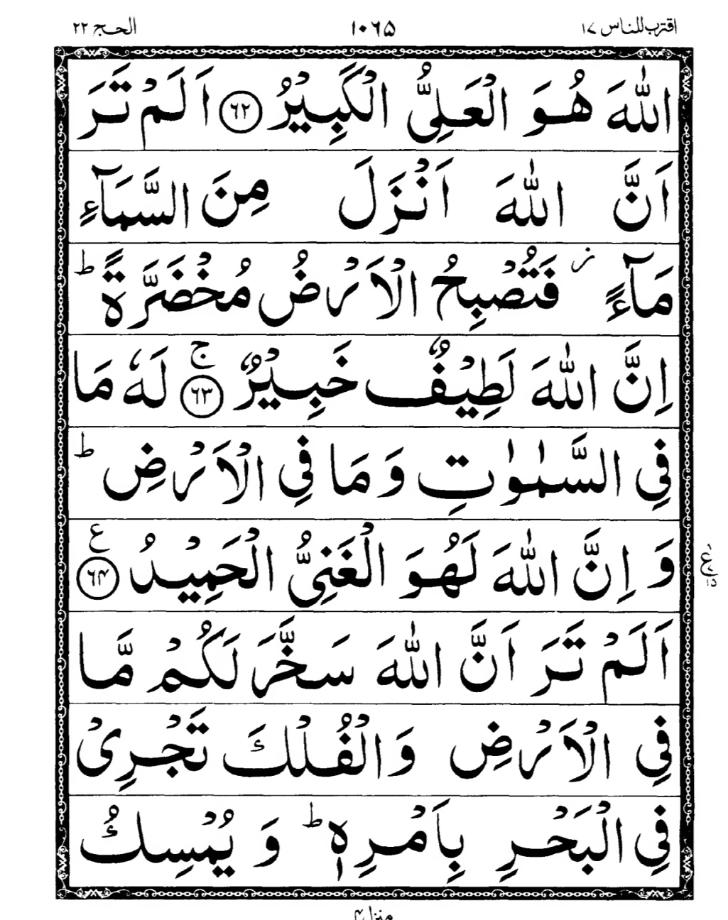 اقترب للناس ١٧ ١٠٦٥ الحج ٢٢
اللّٰهَ هُوَ الْعَلِیُّ الْكَبِیْرُ ﴿٦٢﴾ اَلَمْ تَرَ
اَنَّ اللّٰهَ اَنْزَلَ مِنَ السَّمَآءِ
مَآءً ز فَتُصْبِحُ الْاَرْضُ مُخْضَرَّةً ط
اِنَّ اللّٰهَ لَطِیْفٌ خَبِیْرٌ ﴿٦٣﴾ ج لَهٗ مَا
فِی السَّمٰوٰتِ وَ مَا فِی الْاَرْضِ ط
وَ اِنَّ اللّٰهَ لَهُوَ الْغَنِیُّ الْحَمِیْدُ ﴿٦٤﴾ ع
اَلَمْ تَرَ اَنَّ اللّٰهَ سَخَّرَ لَكُمْ مَّا
فِی الْاَرْضِ وَالْفُلْكَ تَجْرِیْ
فِی الْبَحْرِ بِاَمْرِهٖ ط وَ یُمْسِكُ
منزل ٤